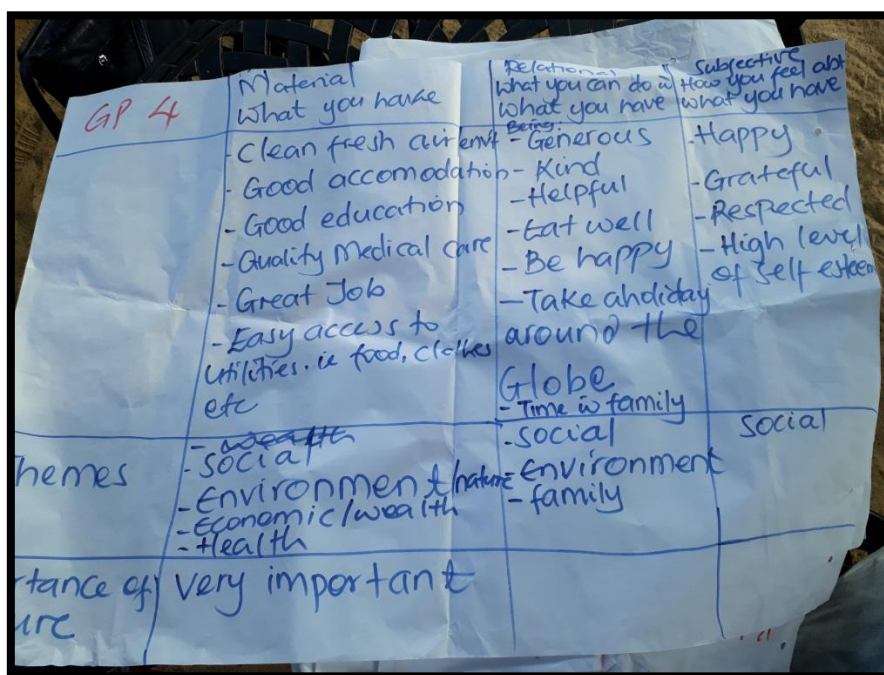 GP 4
Material
What you have
Relational
What you can do w
what you have
Subjective
How you feel abt
what you have
- Clean fresh air/envt
- Good accomodation
- Good education
- Quality Medical care
- Great Job
- Easy access to
utilities. ie food, clothes
etc
Being:
- Generous
- Kind
- Helpful
- Eat well
- Be happy
- Take aholiday
around the
Globe
- Time w family
- Happy
- Grateful
- Respected
- High level
of self esteem
hemes
- wealth
- Social
- Environment/nature
- Economic/wealth
- Health
- Social
- Environment
- family
Social
tance of
ure
very important